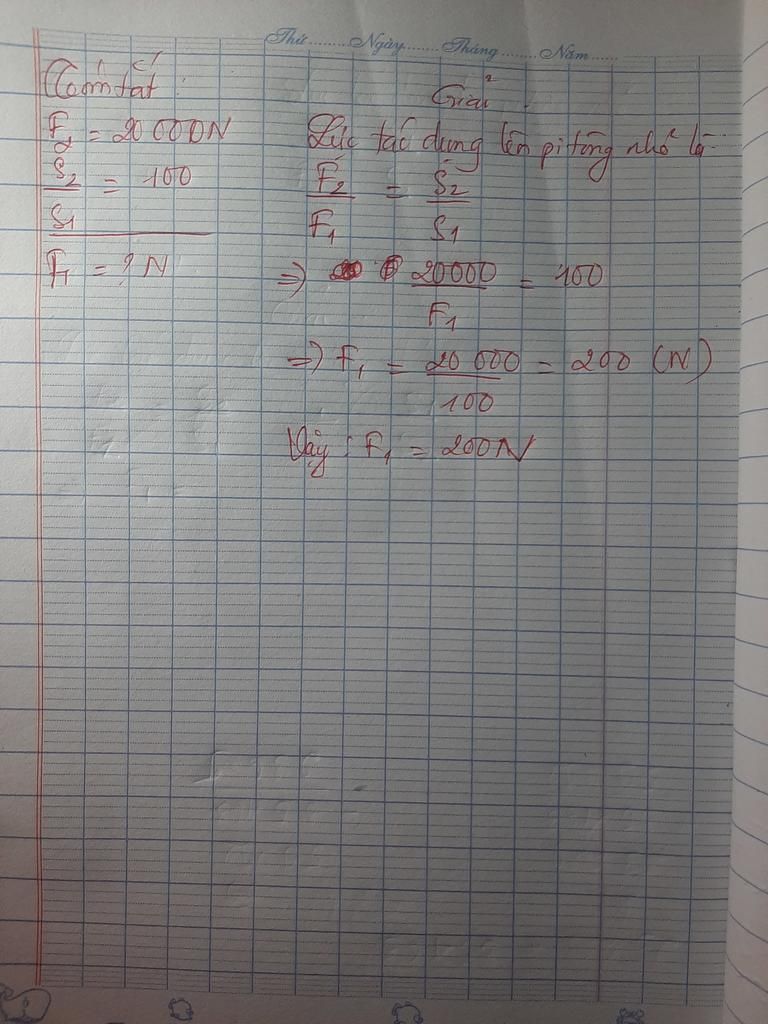 Thứ........Ngày........Tháng........Năm........
Tóm tắt :
F2 = 20 000N
S2
S1
= 100
F1 = ? N
Giải
Lực tác dụng lên pi tông nhỏ là
F2/F1 = S2/S1
=> 20000/F1 = 100
=> F1 = 20 000/100 = 200 (N)
Vậy : F1 = 200N